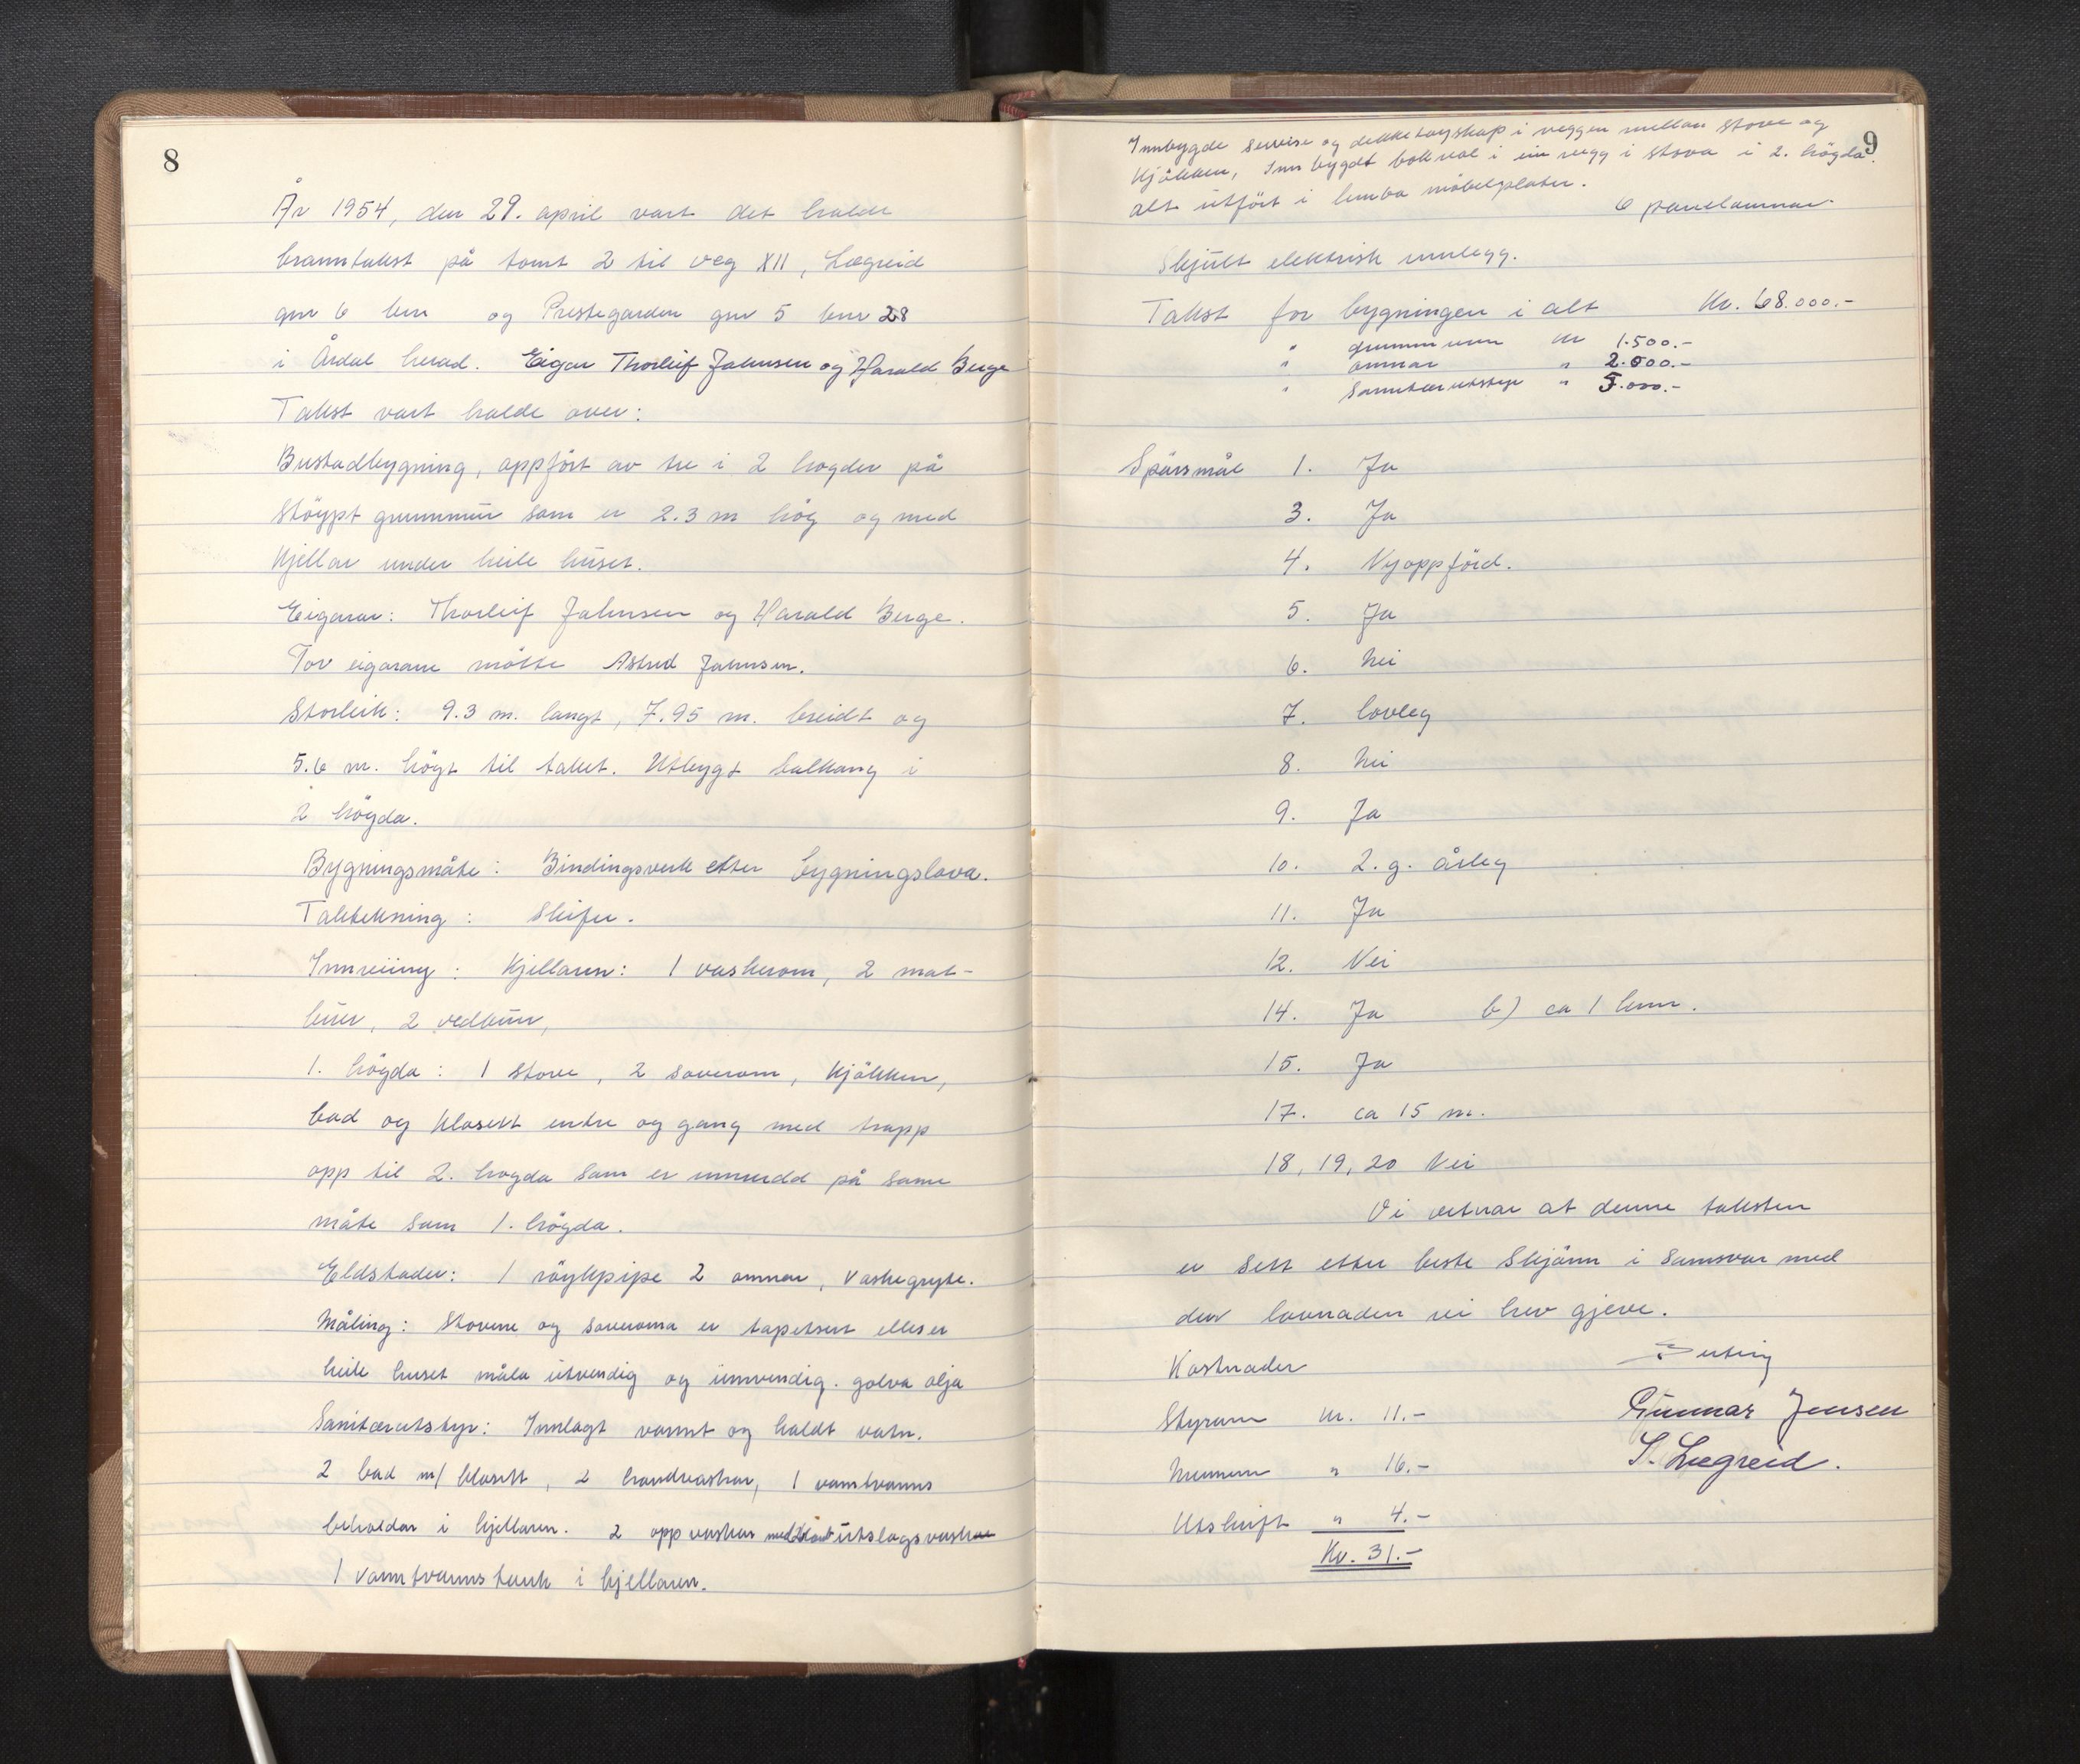 8
År 1954, den 29. april vart det halde
branntakst på tomt 2 til veg XII, Lægreid
gnr 6 bnr og Prestegarden gnr 5 bnr 28
i Årdal herad. Eigar Thorleif Jahnsen og Harald Berge
Takst vart halde over:
Bustadbygning, oppført av tre i 2 høgder på
støypt grunnmur som er 2.3 m høg og med
kjellar under heile huset.
Eigarar: Thorleif Jahnsen og Harald Berge.
For eigarane møtte Astrid Jahnsen.
Storleik: 9.3 m. langt, 7.95 m. breidt og
5.6 m. högt til taket. Utbygt balkong i
2 högda.
Bygningsmåte: Bindingsverk etter bygningslova.
Taktekning: Skifer.
Innreiing: Kjellaren: 1 vaskerom, 2 mat-
buer, 2 vedbuer,
1. högda: 1 stove, 2 soverom, kjökken,
bad og klosett entre og gang med trapp
opp til 2. høgda som er innreidd på same
måte som 1. högda.
Eldstader: 1 röykpipe 2 omnar, vaskegryte.
Måling: Stovene og soveroma er tapetsert elles er
heile huset måla utvendig og innvendig. golva olja
Sanitærutstyr: Innlagt varmt og kaldt vatn.
2 bad m/ klosett, 2 handvaskar, 1 varmtvanns
beholdar i kjellaren. 2 oppvaskar med utslagsvask
1 varmtvannstank i kjellaren.
9
Innbygde servise og dekketøyskap i veggen mellan stove og
kjökken, Innbygdt bokreol i ein vegg i stova i 2. högda.
alt utført i limba möbelplater.
6 panelomnar.
Skjult elektrisk innlegg.
Takst for bygningen i alt Kr. 68.000.-
" grunnmuren kr 1.500.-
" omnar " 2.500.-
" Sanitærutstyr " 5.000.-
Spörsmål 1. Ja
3. Ja
4. Nyoppförd.
5. Ja
6. Nei
7. lovleg
8. Nei
9. Ja
10. 2. g. årleg
11. Ja
12. Nei
14. Ja b) ca 1 km.
15. Ja
17. ca 15 m.
18, 19, 20 Nei
Vi vitnar at denne taksten
er sett etter beste skjönn i samsvar med
den lovnaden vi hev gjeve.
Kostnader
Gunnar Jensen
Styraren kr. 11.-
S. Lægreid.
" 16.-
Utskrift " 4.-
Kr. 31.-